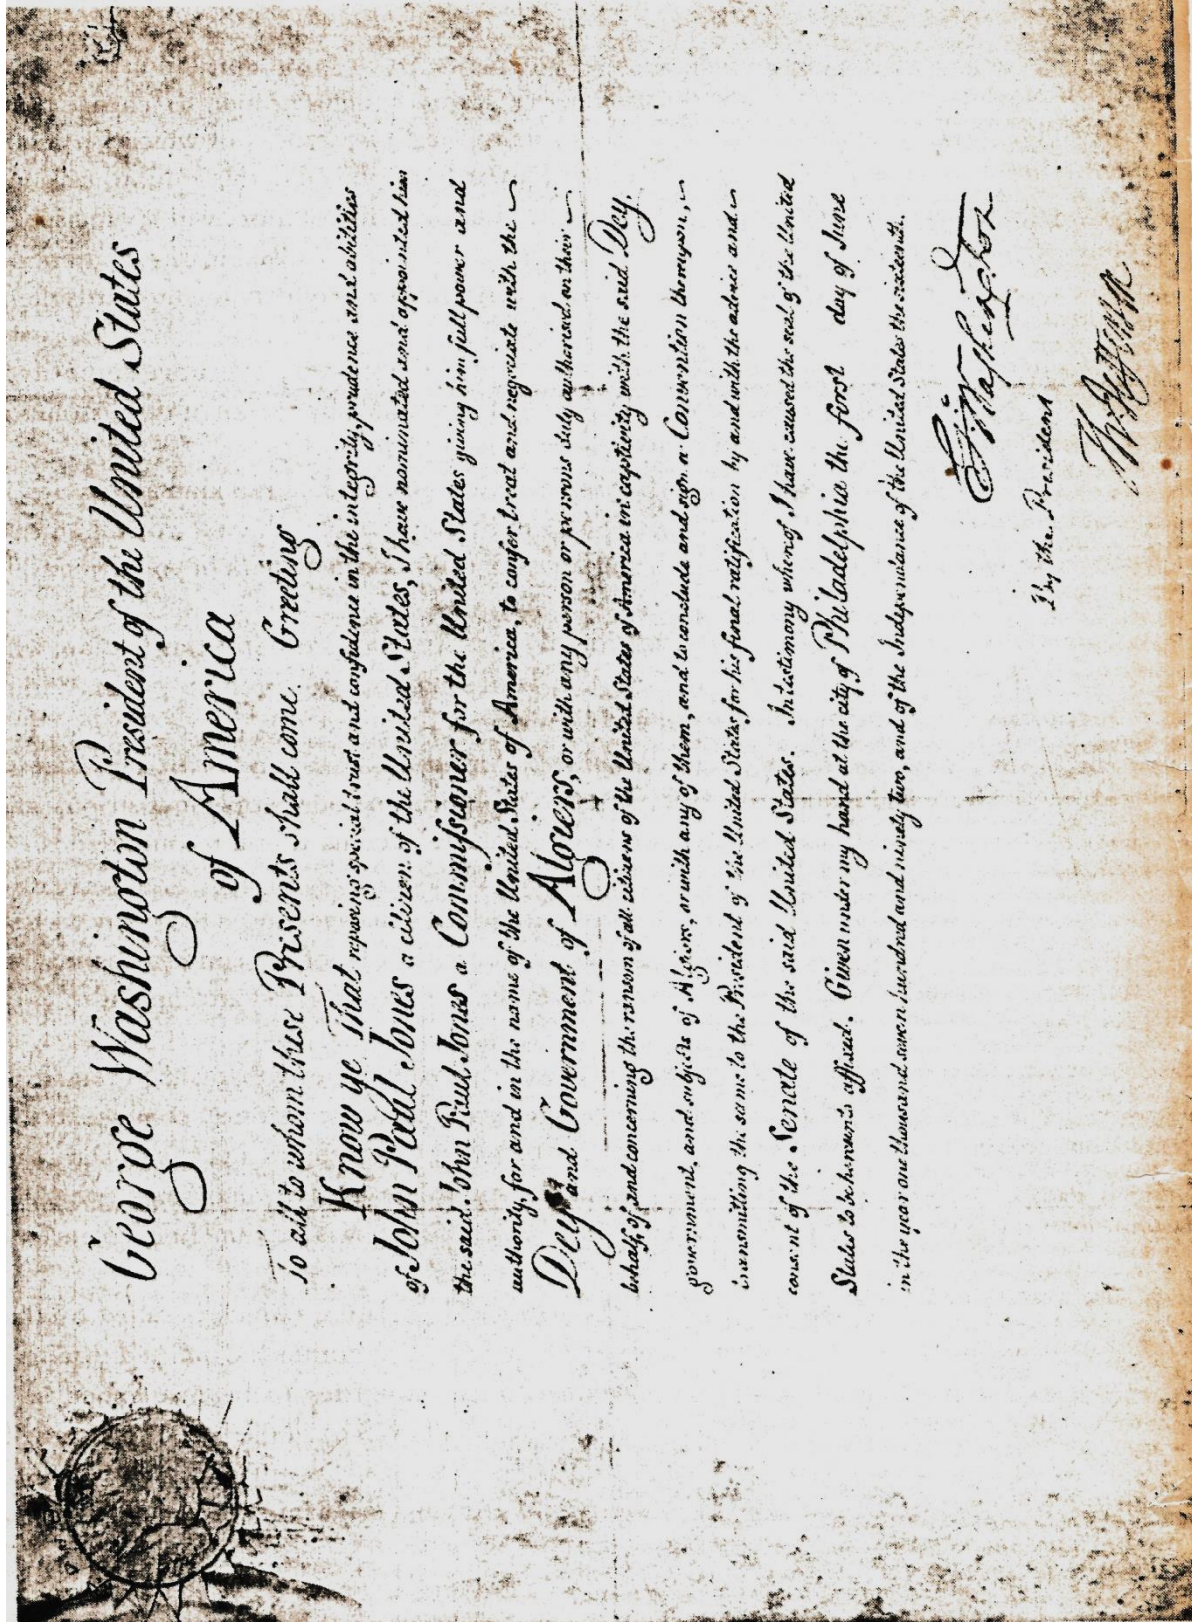 George Washington President of the United States
of America
To all to whom these Presents shall come Greeting
Know ye That reposing special trust and confidence in the integrity, prudence and abilities
of John Paul Jones a citizen of the United States, I have nominated and appointed him
the said John Paul Jones a Commissioner for the United States giving him full power and
authority, for and in the name of the United States of America, to confer treat and negociate with the
Dey and Government of Algiers, or with any person or persons duly authorised on their
behalf, of and concerning the ransom of all citizens of the United States of America in captivity with the said Dey
government, and subjects of Algiers, or with any of them, and to conclude and sign a Convention thereupon,
transmitting the same to the President of the United States for his final ratification by and with the advice and
consent of the Senate of the said United States. In testimony whereof I have caused the seal of the United
States to be hereunto affixed. Given under my hand at the city of Philadelphia the first day of June
in the year one thousand seven hundred and ninety two, and of the Independance of the United States the sixteenth.
Go Washington
By the President
Th: Jefferson